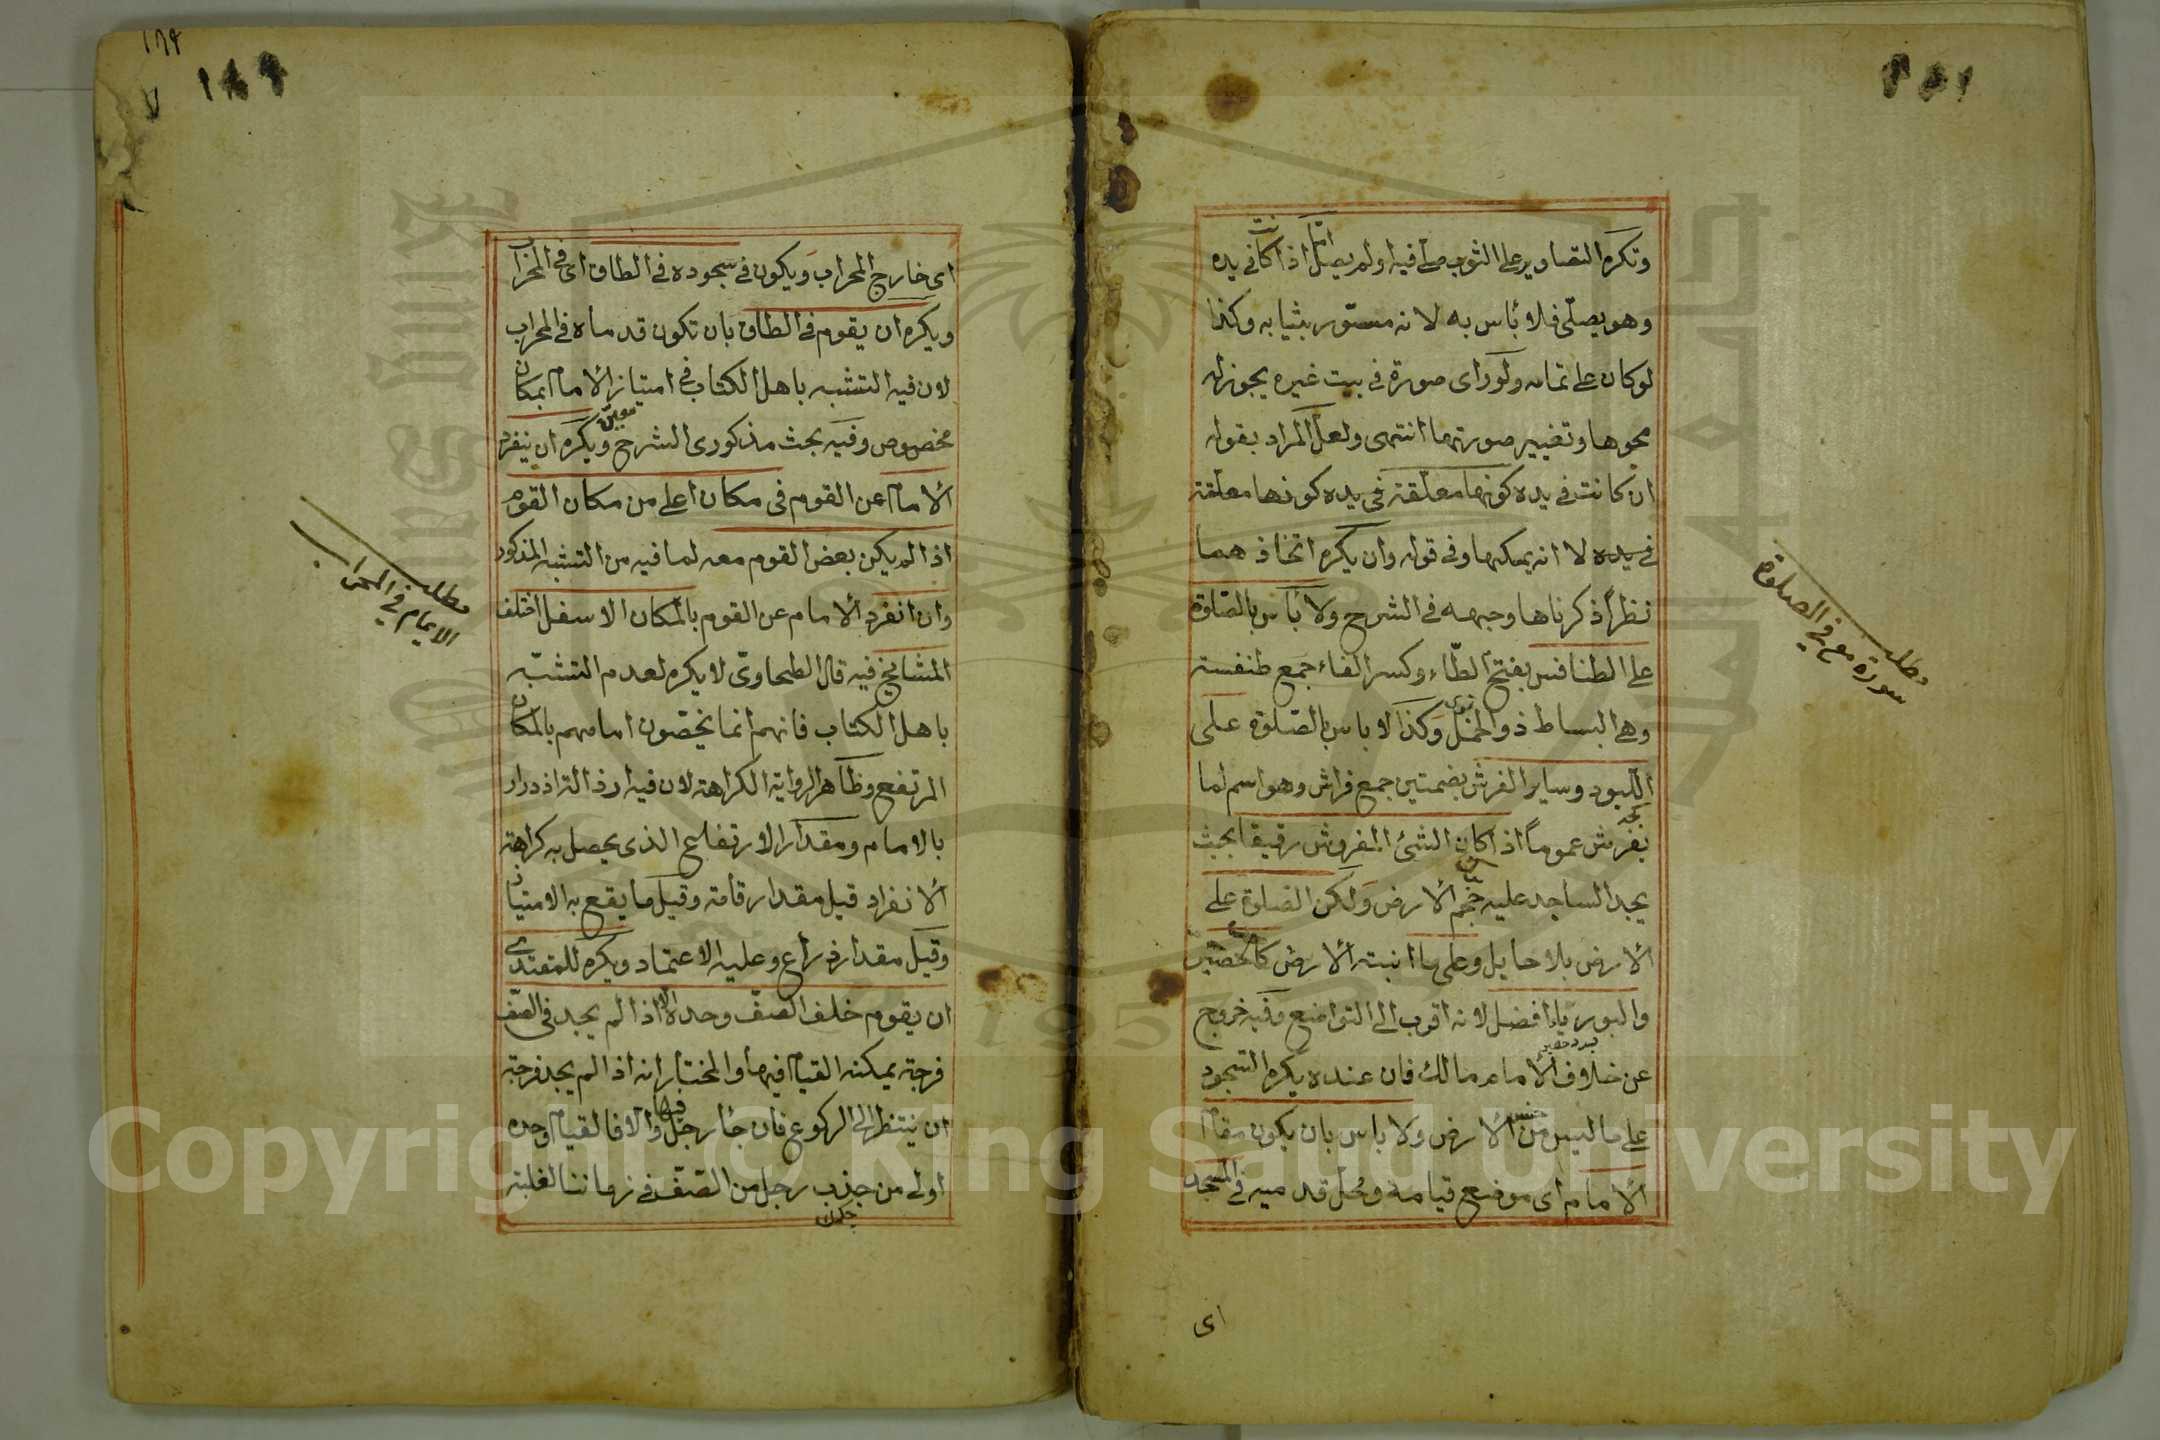 وتكره التصاوير على الثوب صلى فيه او لم يصل اما اذا كانت في يده
وهو يصلى فلا بأس به لانه مستور بثيابه وكذا
لو كان على خاتمه ولو رأى صورة في بيت غيره يجوز له
محوها وتغيير صورتها انتهى ولعل المراد بقوله
ان كانت في يده كونها معلقة في يده كونها معلقة
في يده لا انه يمكنها وفي قوله وان يكره اتخاذهما
نظرا ذكرناها وجهه في الشرح ولا بأس بالصلوة
على الطنافس بفتح الطاء وكسر الفاء جمع طنفسة
وهي البساط ذو الخمل وكذا لا باس بالصلوة على
اللبود وساير الفرش بضمتين جمع فراش وهو اسم لما
يفرش عموما اذا كان الشئ المفروش رقيقا بحيث
يجد الساجد عليه حجم الارض ولكن الصلوة على
الارض بلا حايل وعلى ما انبته الارض كالحصير
والبوريا افضل لانه اقرب الى التواضع وفيه خروج
عن خلاف الامام مالك فان عنده يكره السجود
على ما ليس من جنس الارض ولا باس بان يكون مقام
الامام اى موضع قيامه ومحل قدميه في المسجد
اى
مطلب
صورة مع في الصلوة
١٦٩
١٦٩
اى خارج المحراب ويكون في سجوده في الطاق اى في المحراب
ويكره ان يقوم في الطاق بان تكون قدماه في المحراب
لان فيه التشبه باهل الكتاب في امتياز الامام بمكان
مخصوص معين وفيه بحث مذكور في الشرح ويكره ان ينفرد
الامام عن القوم في مكان اعلى من مكان القوم
اذا لم يكن بعض القوم معه لما فيه من التشبه المذكور
وان انفرد الامام عن القوم بالمكان الاسفل اختلف
المشايخ فيه قال الطحاوى لا يكره لعدم التشبه
باهل الكتاب فانهم انما يخصون امامهم بالمكان
المرتفع وظاهر الرواية الكراهة لان فيه ازدراء
بالامام ومقدار الارتفاع الذى يحصل به كراهة
الانفراد قيل مقدار قامة وقيل ما يقع به الامتياز
وقيل مقدار ذراع وعليه الاعتماد ويكره للمقتدى
ان يقوم خلف الصف وحده الا اذا لم يجد في الصف
فرجة يمكنه القيام فيها والمختار انه اذا لم يجد فرجة
ان ينتظر الى الركوع فان جاء رجل فبها والا فالقيام وحده
اولى من جذب رجل من الصف في زماننا لغلبة
مطلب
الامام في المحراب
Copyright © King Saud University
1957